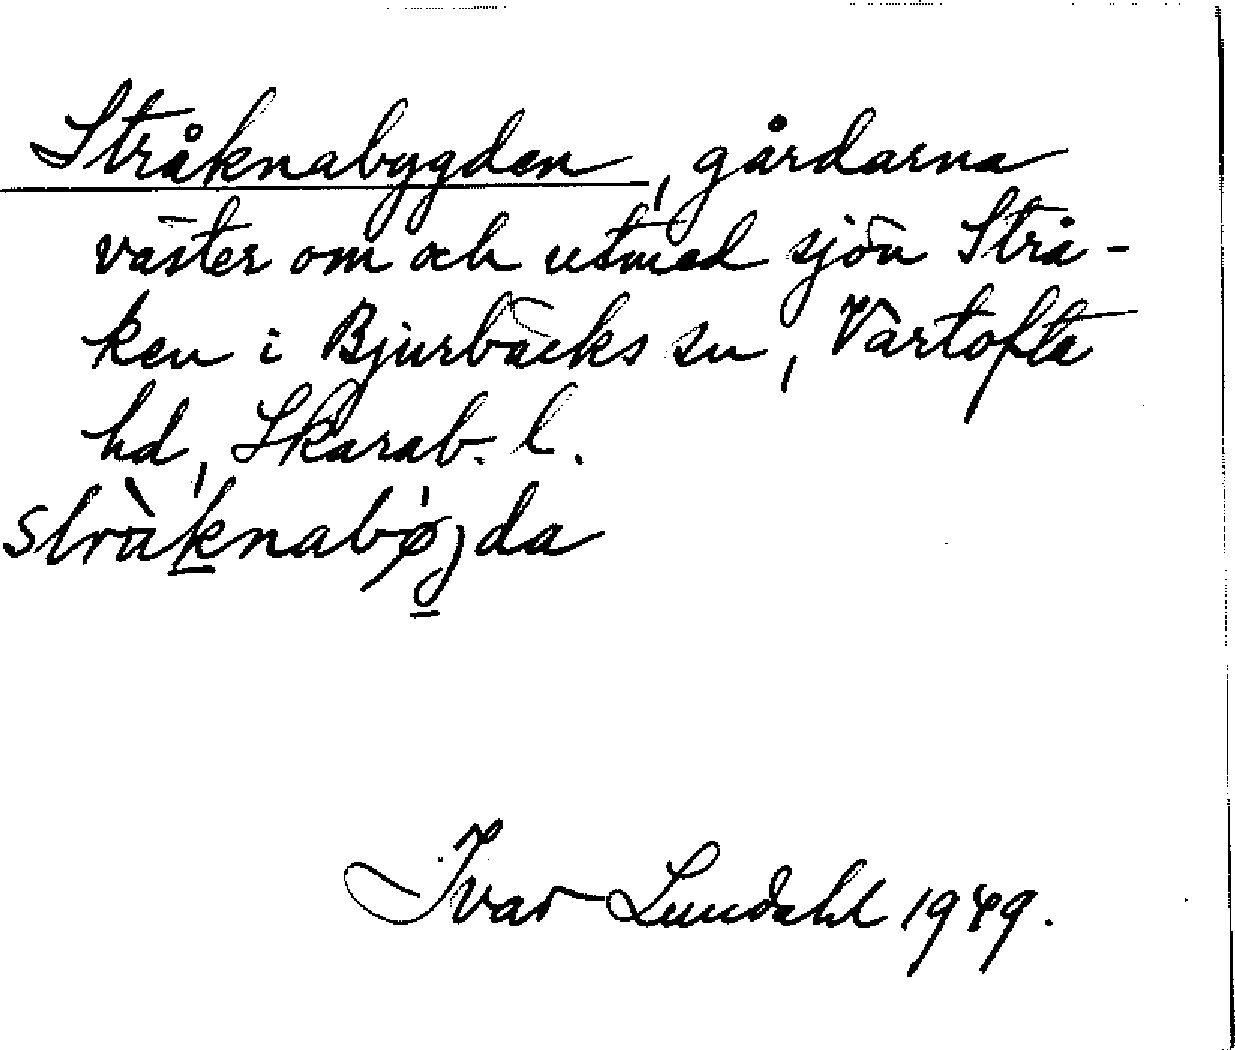 Stråknabygden, gårdarna
väster om och utmed sjön Strå-
ken i Bjurbäcks sn, Vartofta
hd, Skarab. l.
stràknabøjda
Ivar Lundahl 1949.